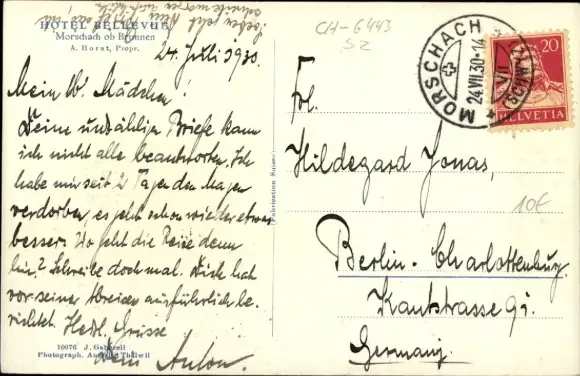 HOTEL BELLEVUE
Morschach ob Brunnen
A. Horat, Propr.
24. Juli 1930.
Mein lb. Mädchen!
Deine unzähligen Briefe kann
ich nicht alle beantworten. Ich
habe mir seit 2 Tagen den Magen
verdorben, es geht schon wieder etwas
besser. Wo geht die Reise denn
hin? Schreibe doch mal. Dick hat
vor seiner Abreise ausführlich be-
richtet. Herzl. Grüsse
Dein Anton.
10076 J. Gaberell
Photograph. Anstalt Thalwil
(Fabrication Suisse)
CH-6443
SZ
MORSCHACH
24.VII.30-14
(SCHWYZ)
20
HELVETIA
Frl.
Hildegard Jonas,
10€
Berlin-Charlottenburg
Kantstrasse 9
Germany.